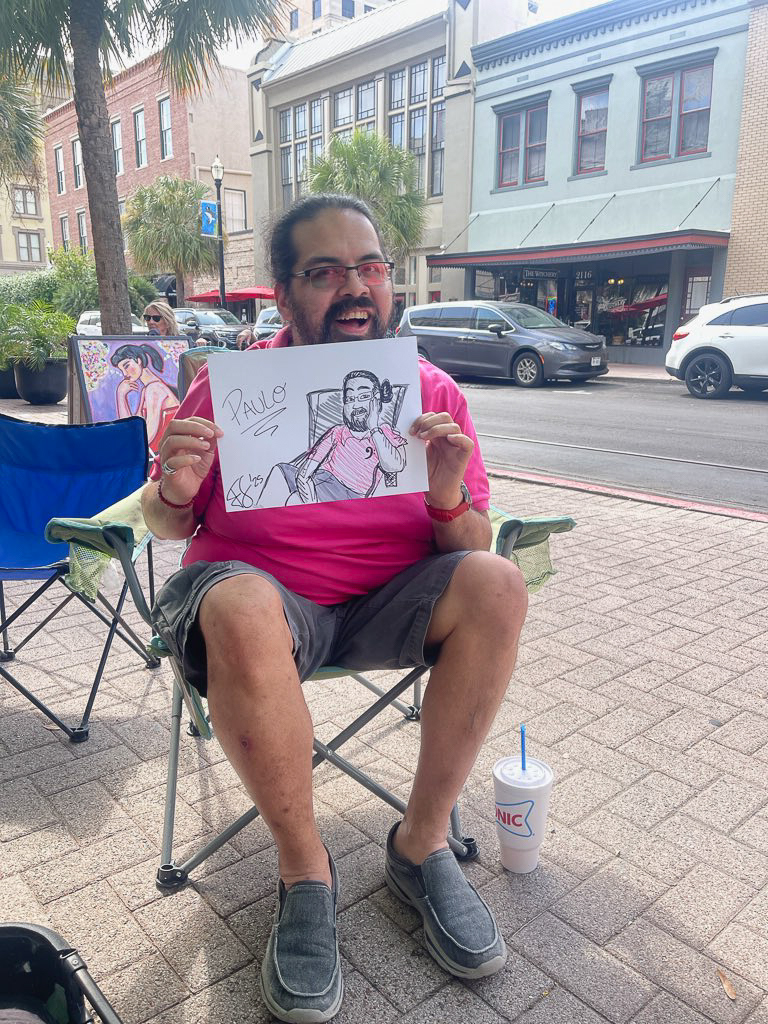 PAULO
'25
THE WITCHERY
2116
NIC